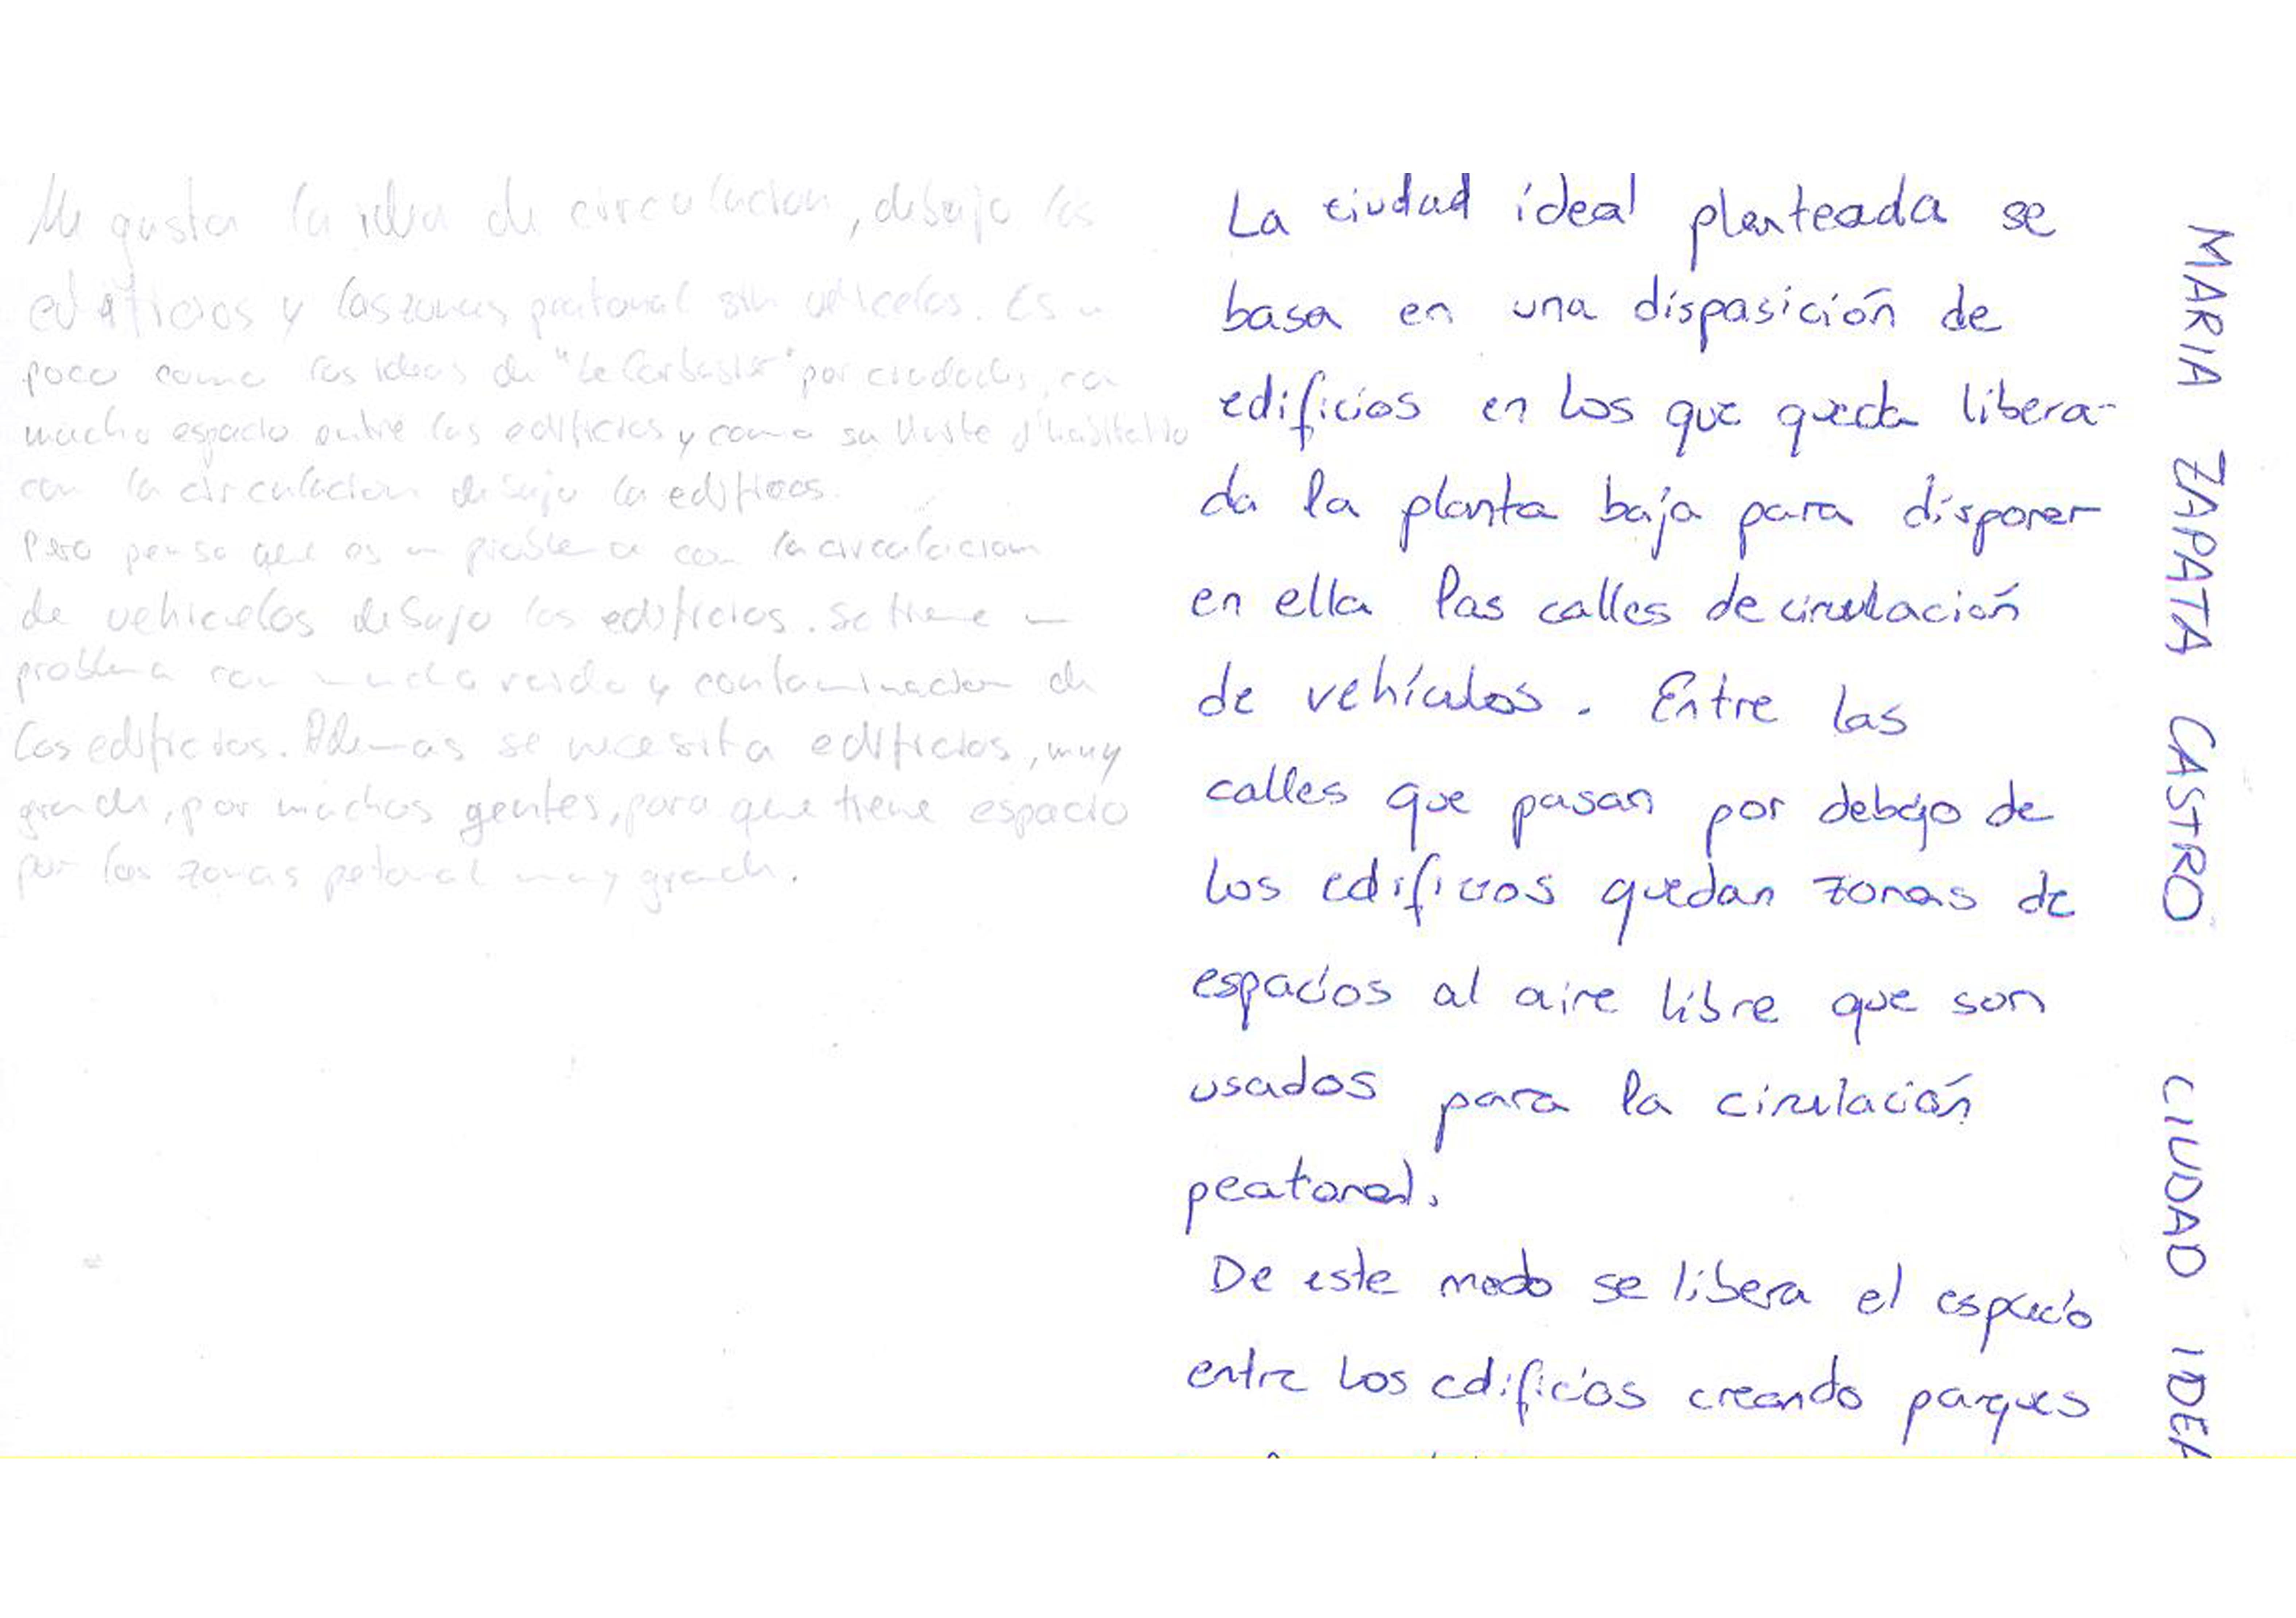 Me gusta la idea de circulacion, debajo los
edificios y las zonas peatonal sin vehicelos. Es u
poco como las ideas de "Le Corbusier" por ciudades, con
mucho espacio entre los edificios y como su d'habitatio
con la circulacion debajo la edificos.
Pero penso que es un problema con la circulacion
de vehicelos debajo los edificios. Se tiene un
problema con mucho ruido y contaminacion de
los edificios. Ademas se necesita edificios, muy
grande, por muchos gentes, para que tiene espacio
por las zonas petonal muy grande.
La ciudad ideal planteada se
basa en una disposición de
edificios en los que queda libera-
da la planta baja para disponer
en ella las calles de circulación
de vehículos. Entre las
calles que pasan por debajo de
los edificios quedan zonas de
espacios al aire libre que son
usados para la circulación
peatonal.
De este modo se libera el espacio
entre los edificios creando parques
MARIA ZAPATA CASTRO CIUDAD IDEA